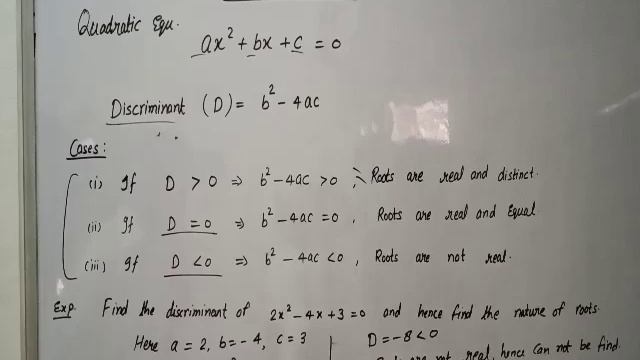 Quadratic Equ.
ax² + bx + c = 0
Discriminant (D) = b² - 4ac
Cases:
(i) If D > 0 ⇒ b² - 4ac > 0, Roots are real and distinct.
(ii) If D = 0 ⇒ b² - 4ac = 0, Roots are real and Equal
(iii) If D < 0 ⇒ b² - 4ac < 0, Roots are not real.
Exp. Find the discriminant of 2x² - 4x + 3 = 0 and hence find the nature of roots.
Here a = 2, b = -4, c = 3 D = -8 < 0
are not real, hence Can not be find.